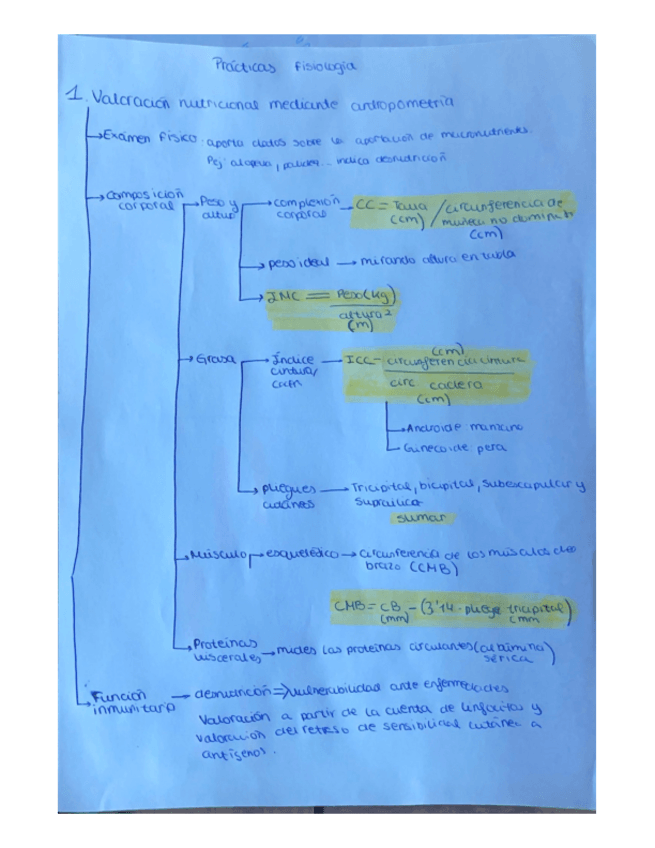 Prácticas Fisiología
1. Valoración nutricional mediante antropometría
Exámen físico: aporta datos sobre la aportación de micronutrientes.
Pej: alopecia, palidez... indica desnutrición
Composición corporal
Peso y altura
Complexión corporal
CC = Talla (cm) / circunferencia de muñeca no dominante (cm)
peso ideal → mirando altura en tabla
IMC = Peso (kg)
altura² (m)
Grasa
Índice cintura/
ICC = circunferencia cintura (cm)
circ cadera (cm)
Androide: manzana
Ginecoide: pera
pliegues cutáneos
Tricipital, bicipital, subescapular y suprailíaco
sumar
Músculo
esquelético → circunferencia de los músculos del brazo (CMB)
CMB = CB (mm) - (3'14 · pliegue tricipital) mm
Proteínas viscerales → mides las proteínas circulantes (albúmina sérica)
Función inmunitaria
desnutrición ⇒ vulnerabilidad ante enfermedades
Valoración a partir de la cuenta de linfocitos y
valoración del retraso de sensibilidad cutánea a
antígenos.